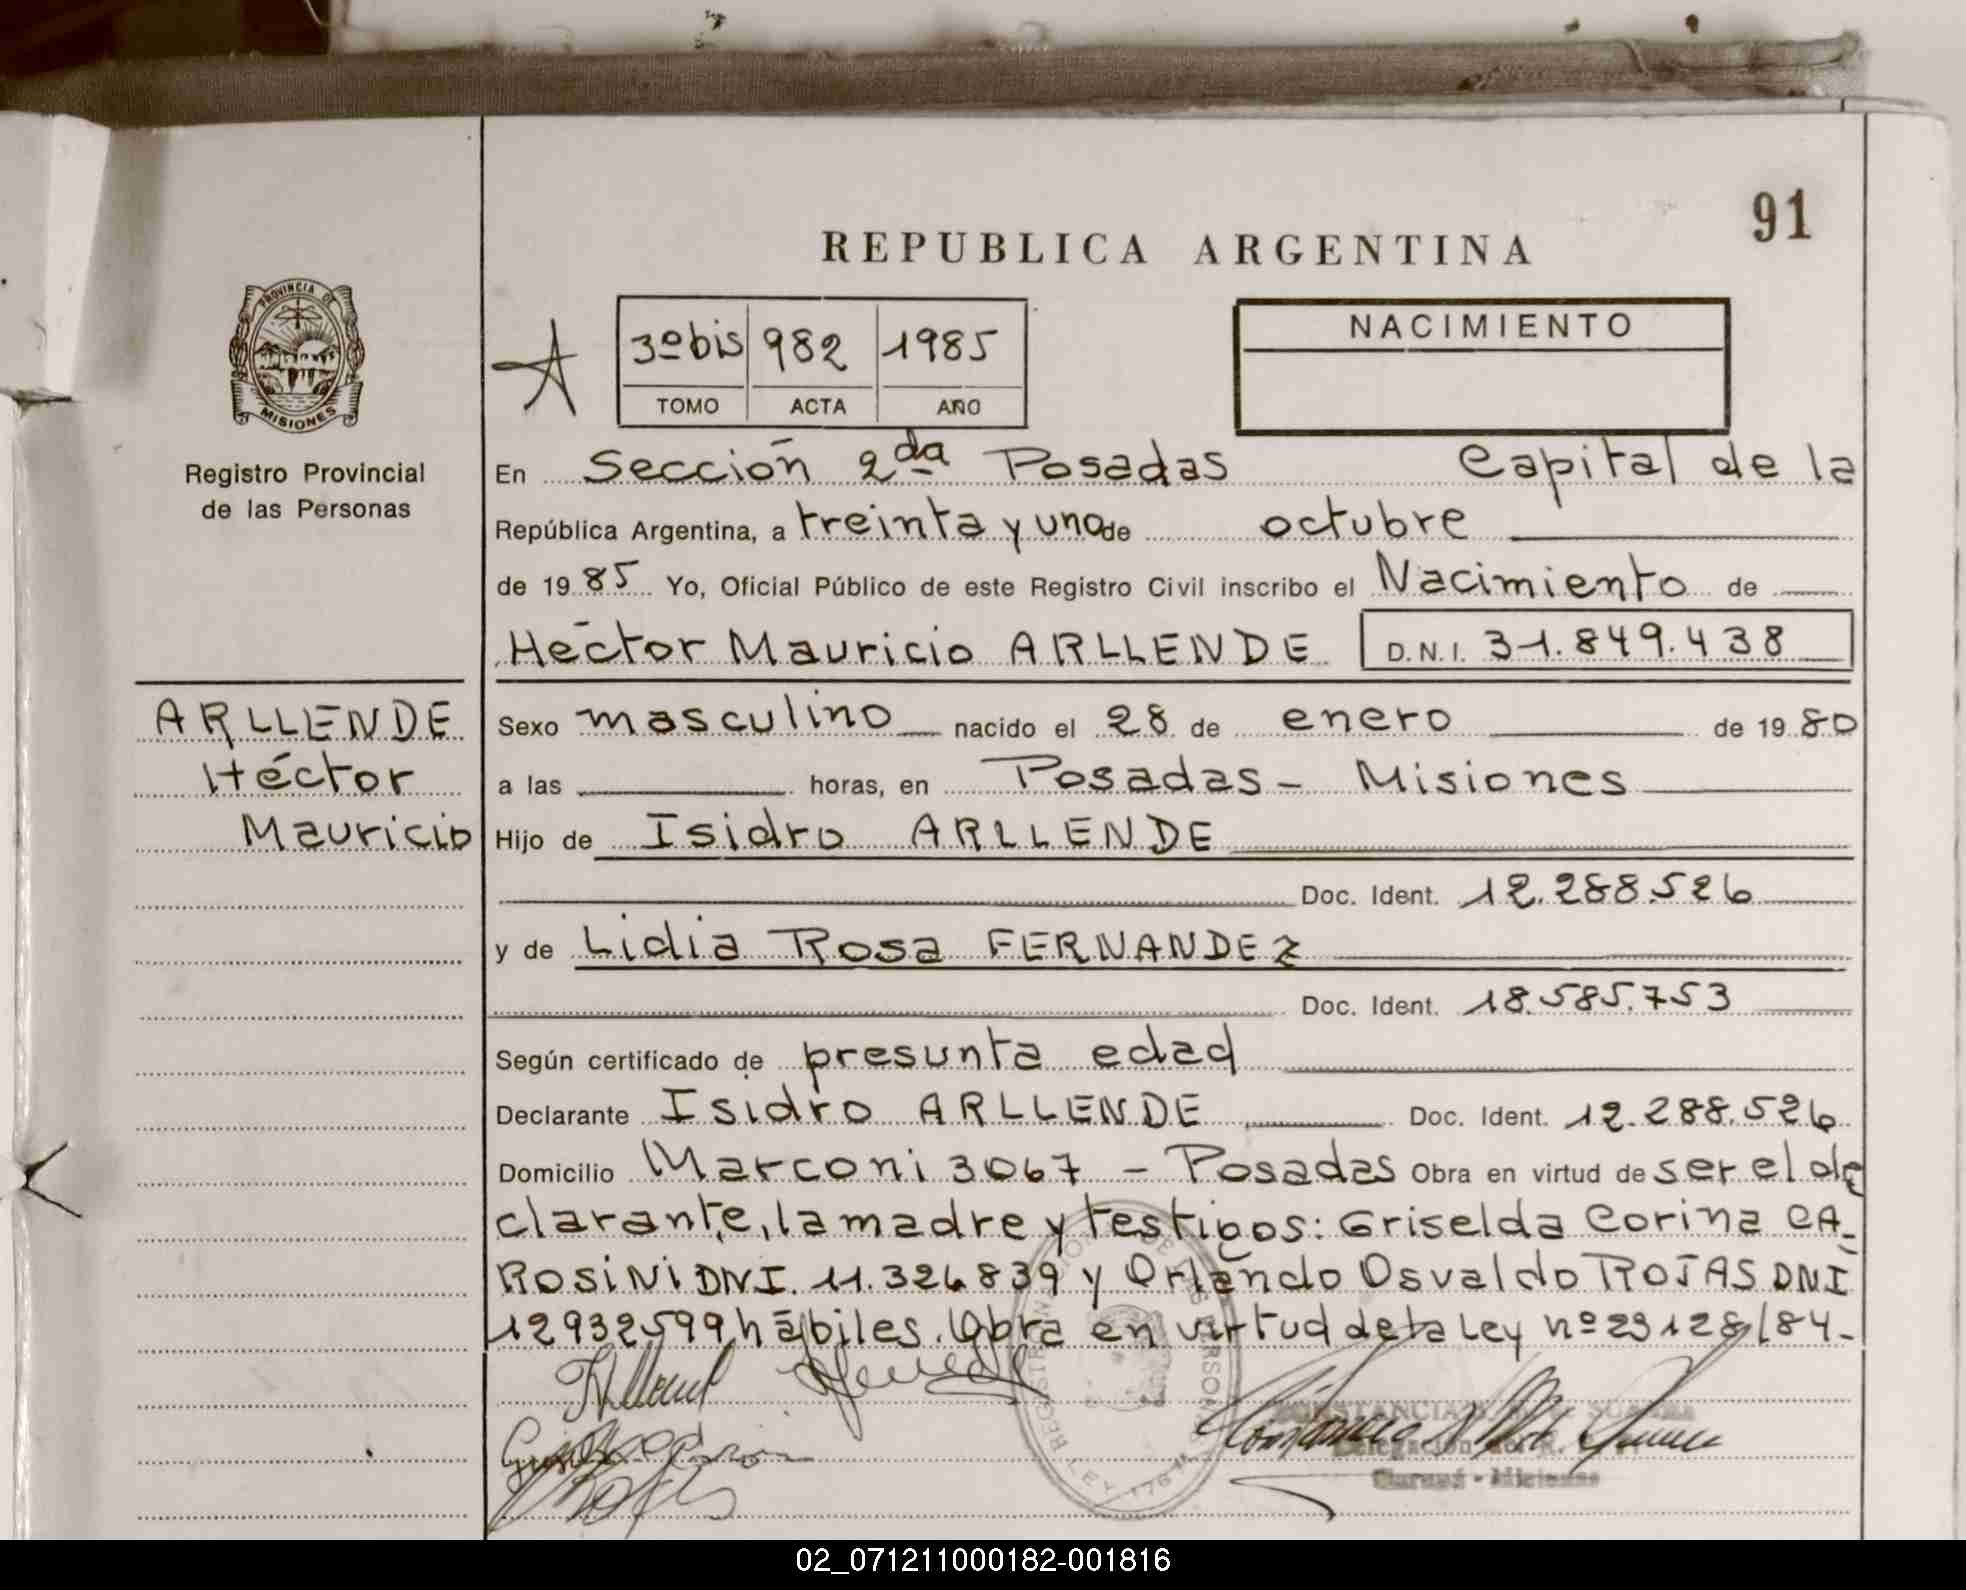 91
REPUBLICA ARGENTINA
PROVINCIA DE
MISIONES
Registro Provincial
de las Personas
3º bis 982 1985
TOMO ACTA AÑO
NACIMIENTO
En Sección 2da Posadas Capital de la
República Argentina, a treinta y uno de octubre
de 1985 Yo, Oficial Público de este Registro Civil inscribo el Nacimiento de
Héctor Mauricio ARLLENDE D.N.I. 31.849.438
ARLLENDE
Héctor
Mauricio
Sexo masculino nacido el 28 de enero de 1980
a las horas, en Posadas - Misiones
Hijo de Isidro ARLLENDE
Doc. Ident. 12.288.526
y de Lidia Rosa FERNANDEZ
Doc. Ident. 18.585.753
Según certificado de presunta edad
Declarante Isidro ARLLENDE Doc. Ident. 12.288.526
Domicilio Marconi 3067 - Posadas Obra en virtud de ser el de
clarante, la madre y testigos: Griselda Corina CA-
ROSINI DNI. 11.326839 y Orlando Osvaldo ROJAS DNI
12932599 hábiles. Obra en virtud de la Ley nº 23128/84-
02_071211000182-001816